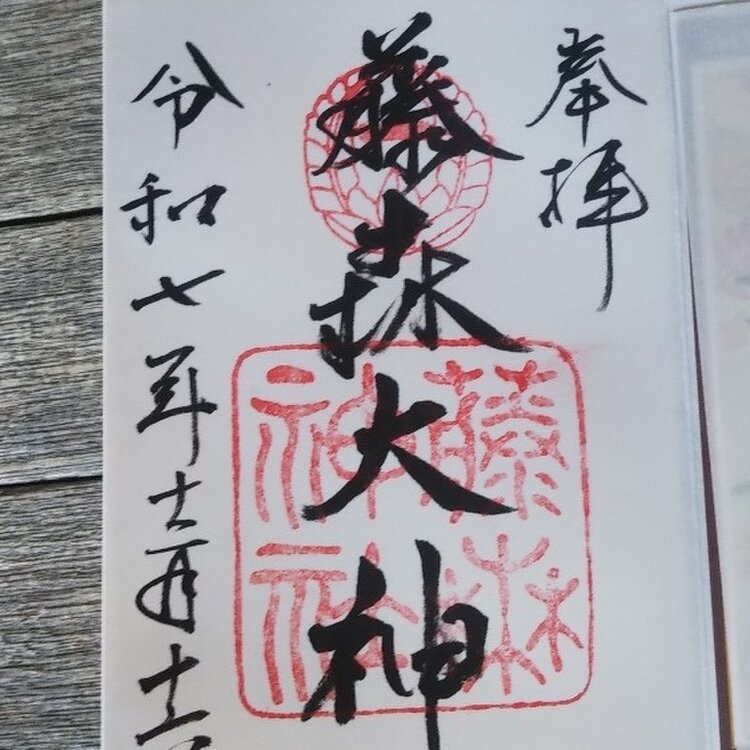 奉拝
藤森大神
藤森神社
令和七年十二月